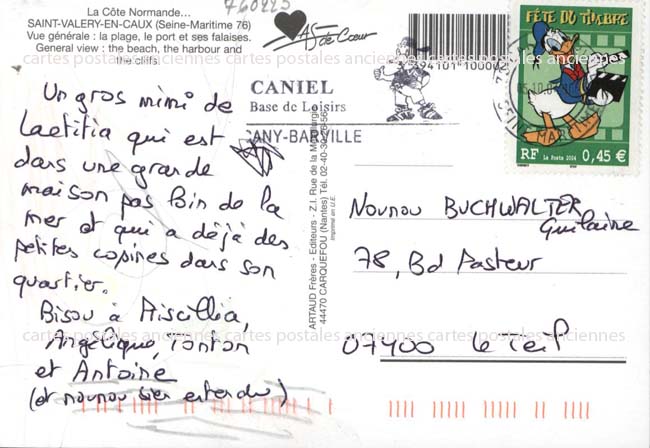 760225
La Côte Normande...
SAINT-VALERY-EN-CAUX (Seine-Maritime 76)
Vue générale : la plage, le port et ses falaises.
General view : the beach, the harbour and
the cliffs.
AS de Cœur
CANIEL
Base de Loisirs
CANY-BARVILLE
FÊTE DU TIMBRE
RF La Poste 2004 0,45 €
Un gros mimi de
Laetitia qui est
dans une grande
maison pas loin de la
mer et qui a déjà des
petites copines dans son
quartier.
Bisou à Priscillia,
Angélique, Tonton
et Antoine
(et nounou bien entendu)
ARTAUD Frères - Editeurs - Z.I. Rue de la Métallurgie
44470 CARQUEFOU (Nantes) Tél. 02-40-30-26-56
Imprimé en U.E.
Nounou BUCHWALTER
Guilaine
78, Bd Pasteur
07400 le Teil
cartes postales anciennes cartes postales anciennes cartes postales anciennes
cartes postales anciennes cartes postales anciennes cartes postales anciennes